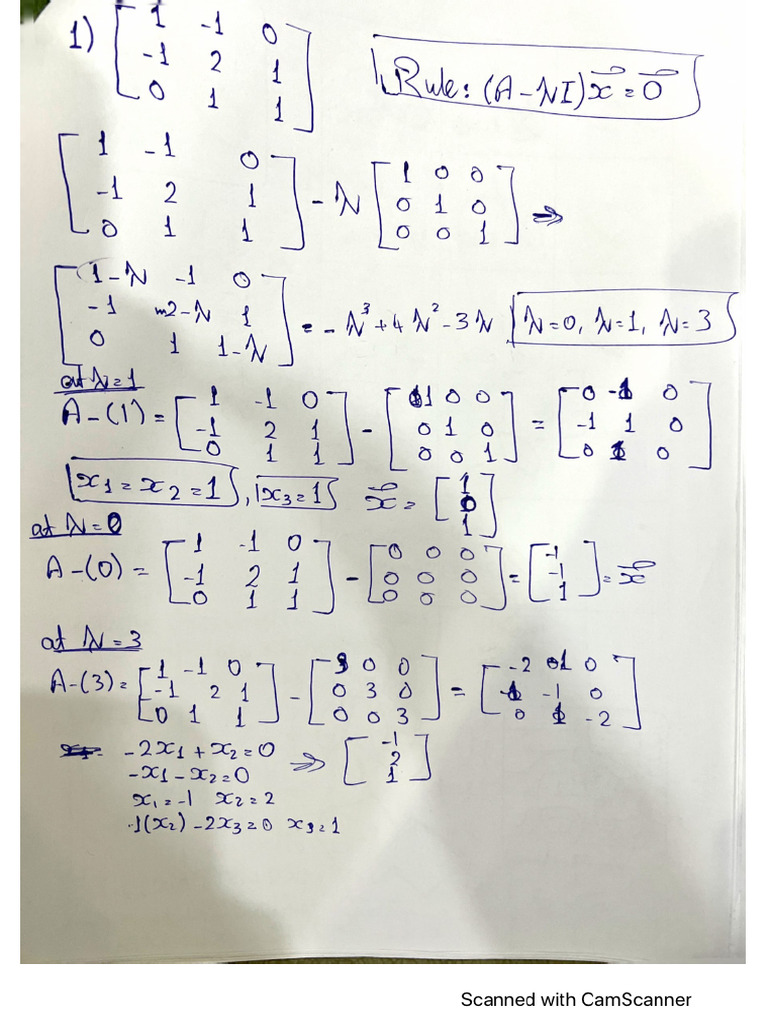 1) [1 -1 0
-1 2 1
0 1 1]
Rule: (A-λI)x⃗=0⃗
[1 -1 0
-1 2 1
0 1 1] - λ [1 0 0
0 1 0
0 0 1] ⇒
[1-λ -1 0
-1 2-λ 1
0 1 1-λ] = -λ³+4λ²-3λ λ=0, λ=1, λ=3
at λ=1
A-(1) = [1 -1 0
-1 2 1
0 1 1] - [1 0 0
0 1 0
0 0 1] = [0 -1 0
-1 1 0
0 1 0]
x₁=x₂=1, x₃=1 x⃗= [1
0
1]
at λ=0
A-(0) = [1 -1 0
-1 2 1
0 1 1] - [0 0 0
0 0 0
0 0 0] = [-1
-1
1] = x⃗
at λ=3
A-(3) = [1 -1 0
-1 2 1
0 1 1] - [3 0 0
0 3 0
0 0 3] = [-2 1 0
-1 -1 0
0 1 -2]
-2x₁+x₂=0 ⇒ [-1
2
1]
-x₁-x₂=0
x₁=-1 x₂=2
1(x₂)-2x₃=0 x₃=1
Scanned with CamScanner